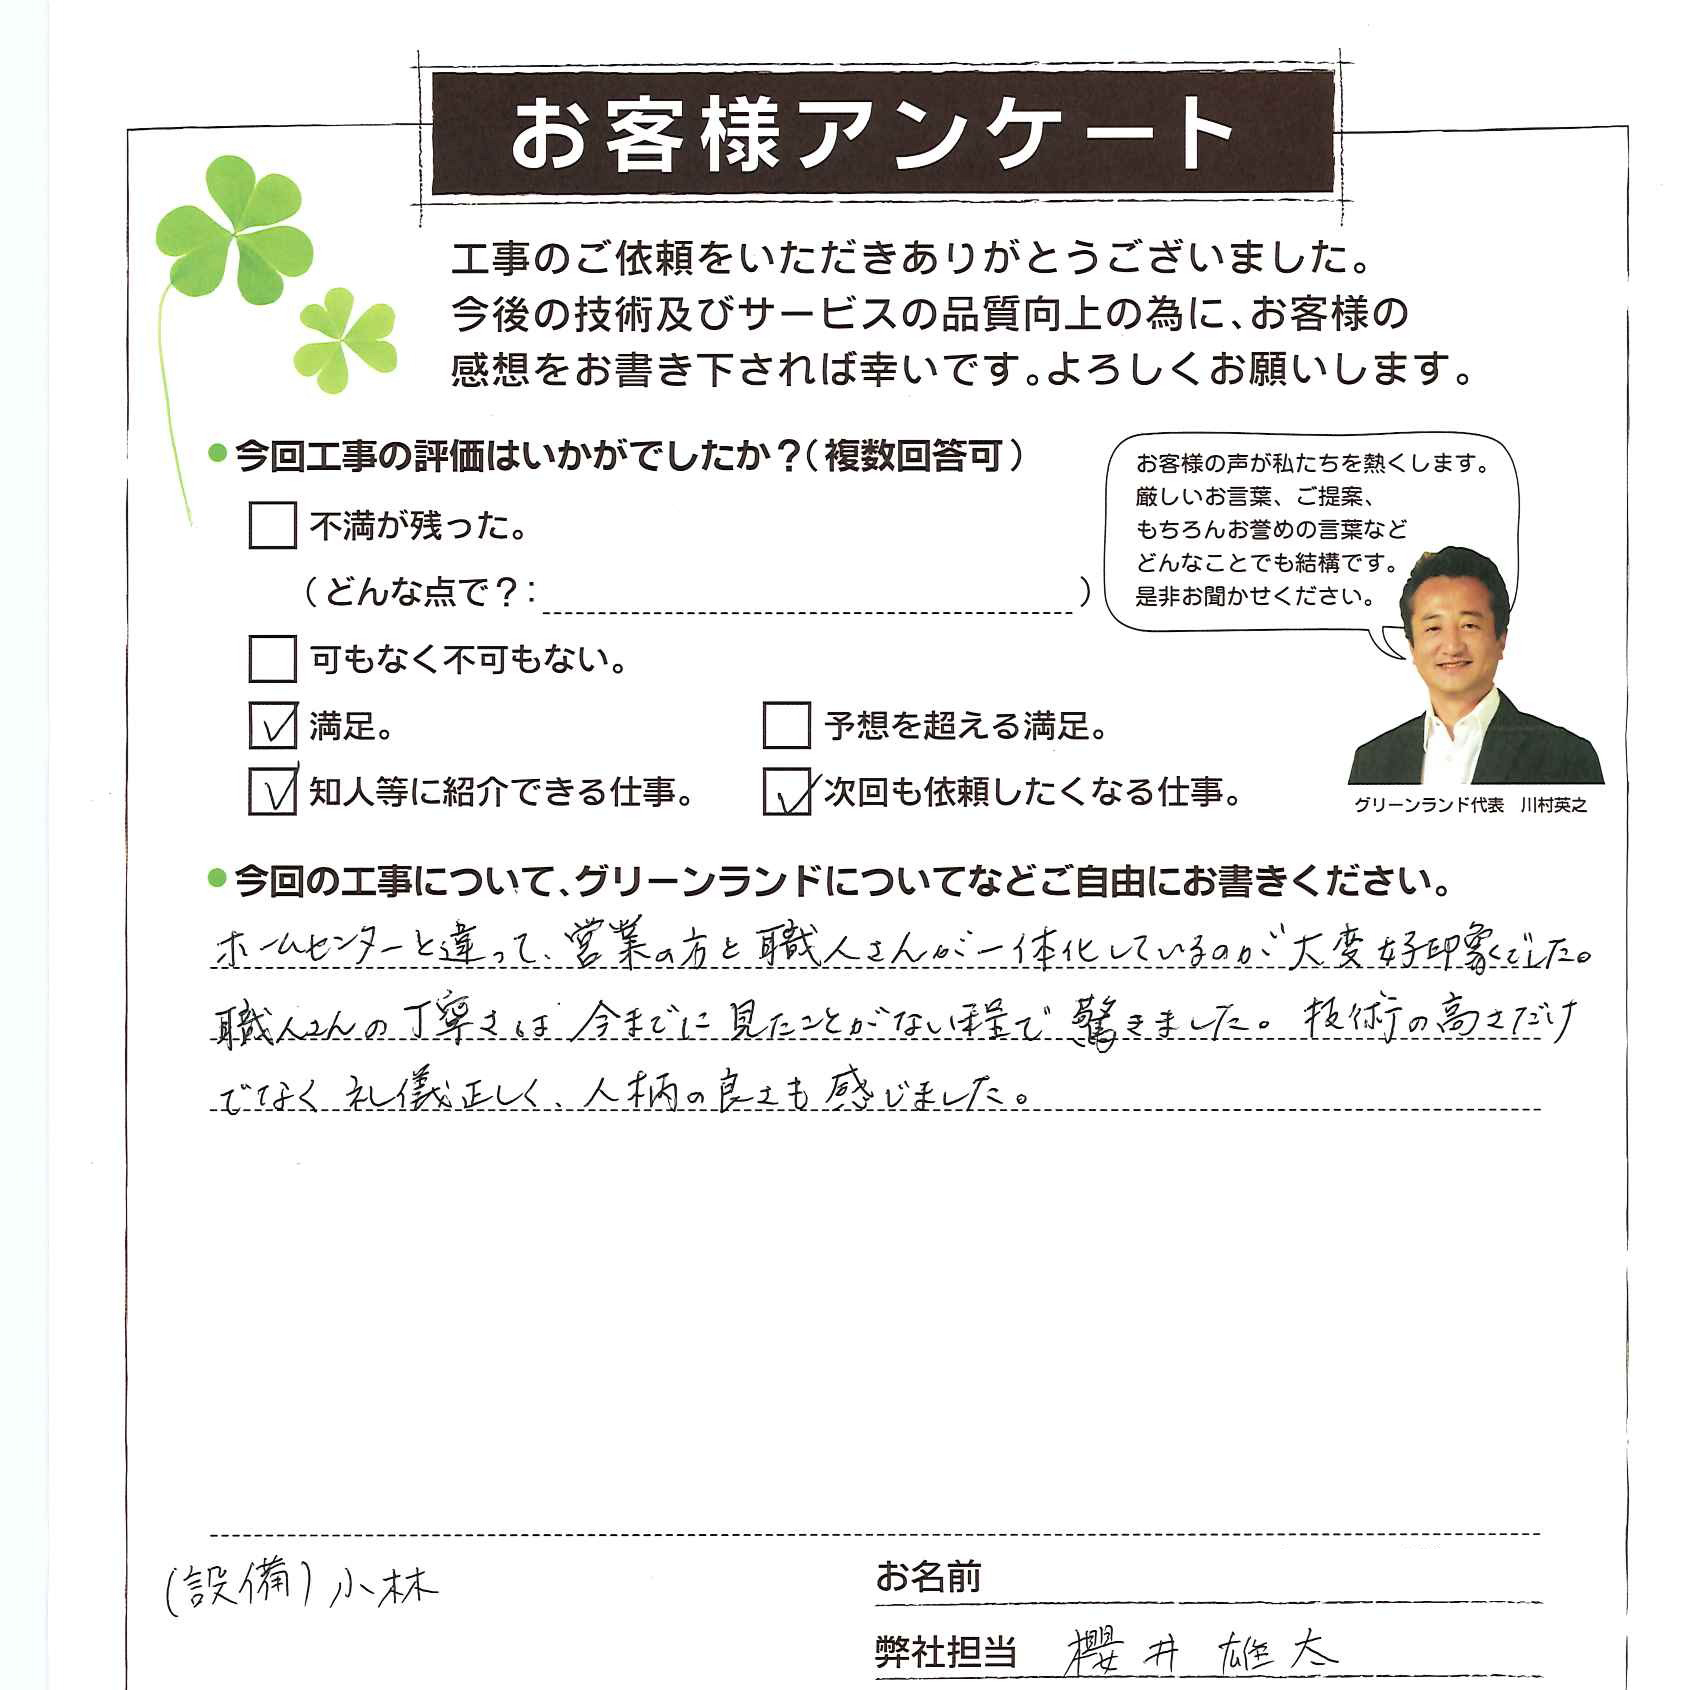 お客様アンケート
工事のご依頼をいただきありがとうございました。
今後の技術及びサービスの品質向上の為に、お客様の
感想をお書き下されば幸いです。よろしくお願いします。
今回工事の評価はいかがでしたか？（複数回答可）
不満が残った。
（どんな点で？：）
可もなく不可もない。
満足。
予想を超える満足。
知人等に紹介できる仕事。
次回も依頼したくなる仕事。
お客様の声が私たちを熱くします。
厳しいお言葉、ご提案、
もちろんお誉めの言葉など
どんなことでも結構です。
是非お聞かせください。
グリーンランド代表　川村英之
今回の工事について、グリーンランドについてなどご自由にお書きください。
ホームセンターと違って、営業の方と職人さんが一体化しているのが大変好印象でした。
職人さんの丁寧さは今までに見たことがない程で驚きました。技術の高さだけ
でなく礼儀正しく、人柄の良さも感じました。
（設備）小林
お名前
弊社担当　櫻井 雄太